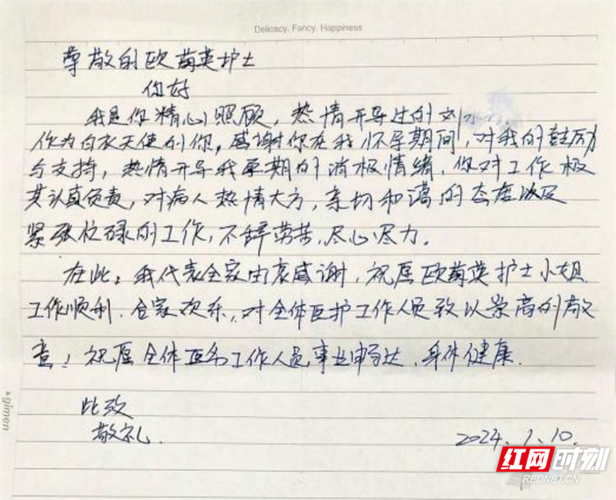 Delicacy, Fancy, Happiness
尊敬的欧菊英护士
你好
我是你精心照顾，热情开导过的刘
作为白衣天使的你，感谢你在我怀孕期间，对我的鼓励
与支持，热情开导我孕期的消极情绪，你对工作极
其认真负责，对病人热情大方，亲切和蔼的态度以及
紧张忙碌的工作，不辞劳苦，尽心尽力。
在此：我代表全家由衷感谢，祝愿欧菊英护士小姐
工作顺利．合家欢乐，对全体医护工作人员致以崇高的敬
意！祝愿全体医务工作人员事业畅达，身体健康．
此致
敬礼．
2024．1．10．
gimen
红网时刻
REDNET.CN